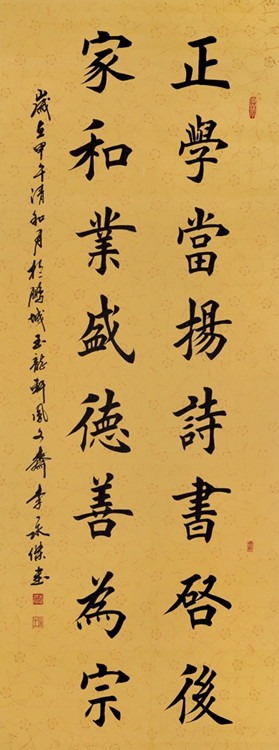 正學當揚詩書啓後
家和業盛德善為宗
歲在甲午清和月於鵬城玉龍軒鳳文齋李承傑書